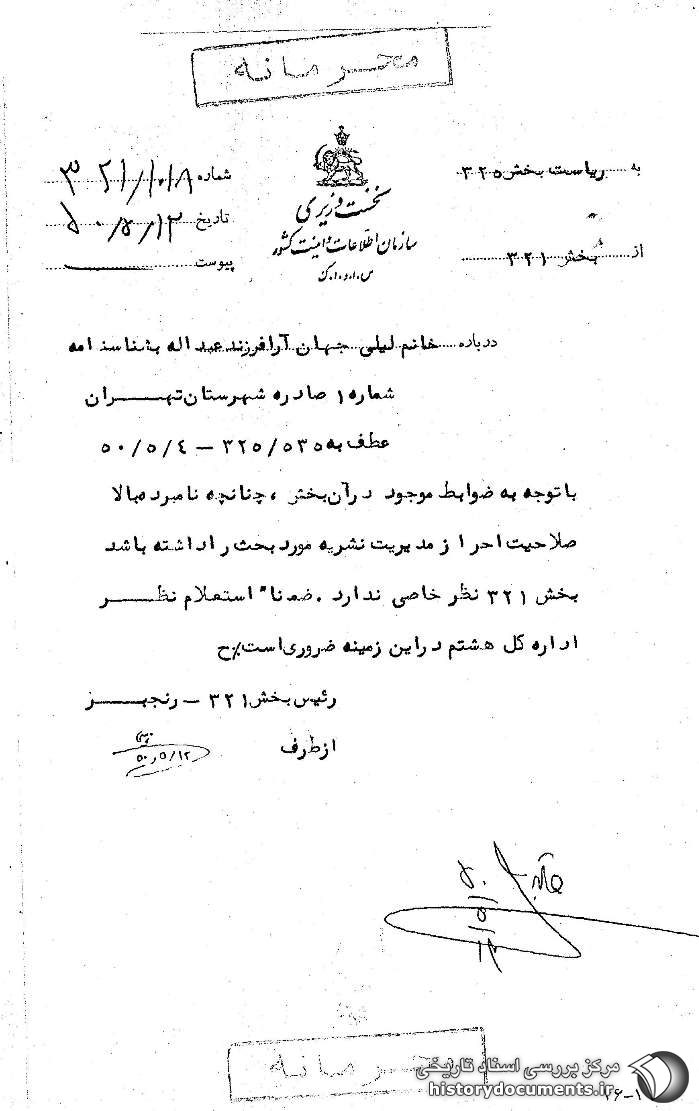 محرمانه
به ریاست بخش ۳۲۵
از بخش ۳۲۱
نخست وزیری
سازمان اطلاعات و امنیت کشور
س.ا.و.ا.ک
شماره ۳۲۱/۱۰۱۸
تاریخ ۵۰/۵/۱۲
پیوست
درباره خانم لیلی جهان آرا فرزند عبداله بشناسنامه
شماره ۱ صادره شهرستان تهران
عطف به ۳۲۵/۵۳۵ – ۵۰/۵/۴
با توجه به ضوابط موجود در آن بخش ، چنانچه نامبرده بالا
صلاحیت احراز مدیریت نشریه مورد بحث را داشته باشد
بخش ۳۲۱ نظر خاصی ندارد . ضمناً استعلام نظر
اداره کل هشتم در این زمینه ضروری است٪ح
رئیس بخش ۳۲۱ – رنجبر
از طرف
۵۰/۵/۱۲
محرمانه
مرکز بررسی اسناد تاریخی
historydocuments.ir